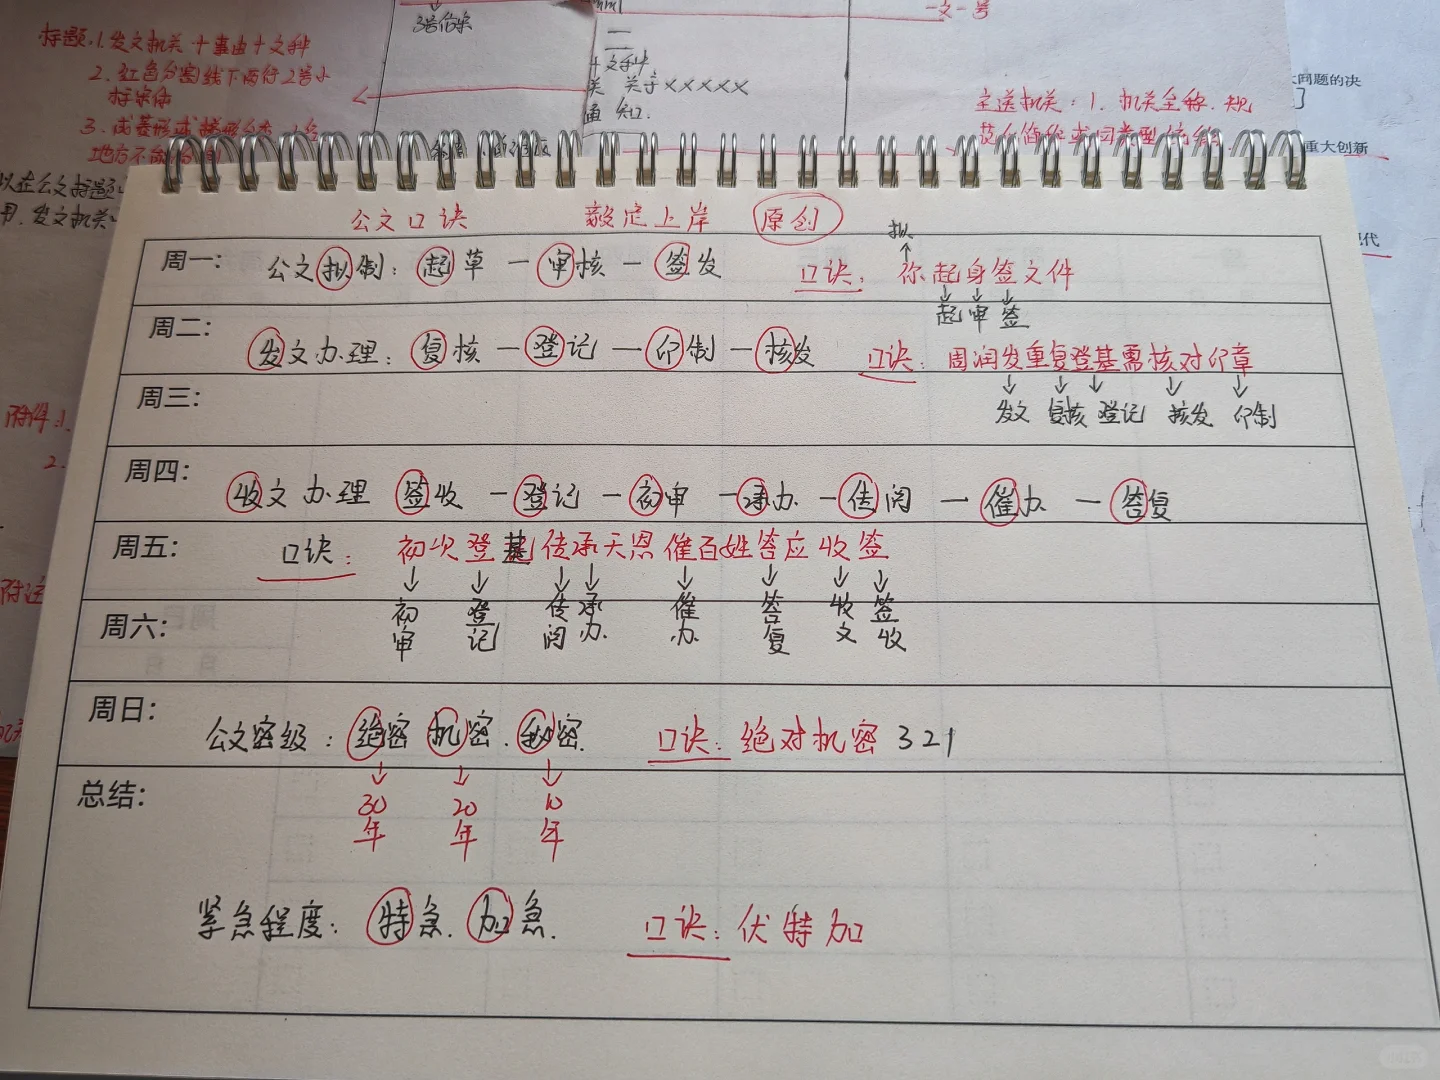 3号仿宋
一文一号
标题.1.发文机关+事由+文种
2.红色分割线下两行2号小
标宋体
3.成菱形或梯形分布
地方不
二
+文种
关 关于×××××
知.
主送机关:1.机关全称.规
范化简称或同类型统称.
问题的决
重大创新
现代
以在公文标题
用.发文机关
附件:1.
2.
附注
公文口诀 毅定上岸 原创
拟
周一: 公文拟制:起草—审核—签发 口诀:你起身签文件
起 审 签
周二: 发文办理:复核—登记—印制—核发 口诀:周润发重复登基需核对印章
周三: 发文 复核 登记 核发 印制
周四: 收文办理 签收—登记—初审—承办—传阅—催办—答复
周五: 口诀: 初次登基传承天恩催百姓答应收签
周六: 初审 登记 传阅 承办 催办 答复 收文 签收
周日: 公文密级:绝密.机密.秘密. 口诀:绝对机密321
总结: 30年 20年 10年
紧急程度:特急.加急. 口诀:伏特加